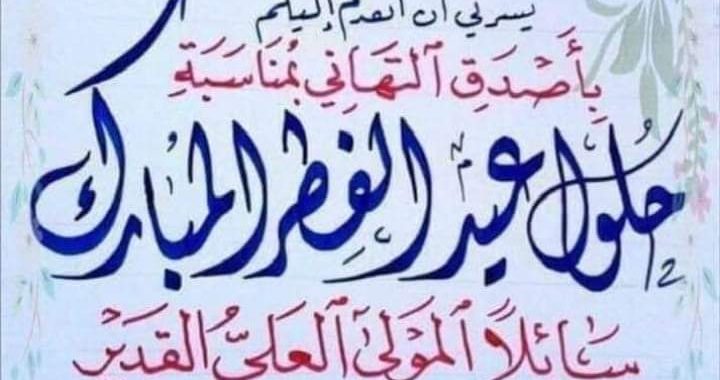 يسرني أن أتقدم إليكم
بِأَصْدَقِ ٱلتَّهَانِي بِمُنَاسَبَةِ
حُلُول عيد الفِطر المُبارك
سَائلاً ٱلمَوْلَىٰ ٱلعَلىَّ القَدير